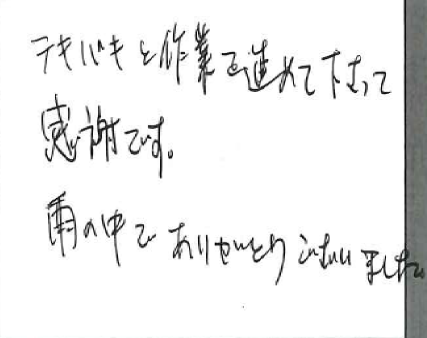 テキパキと作業を進めて下さって
感謝です。
雨の中でありがとうございました。